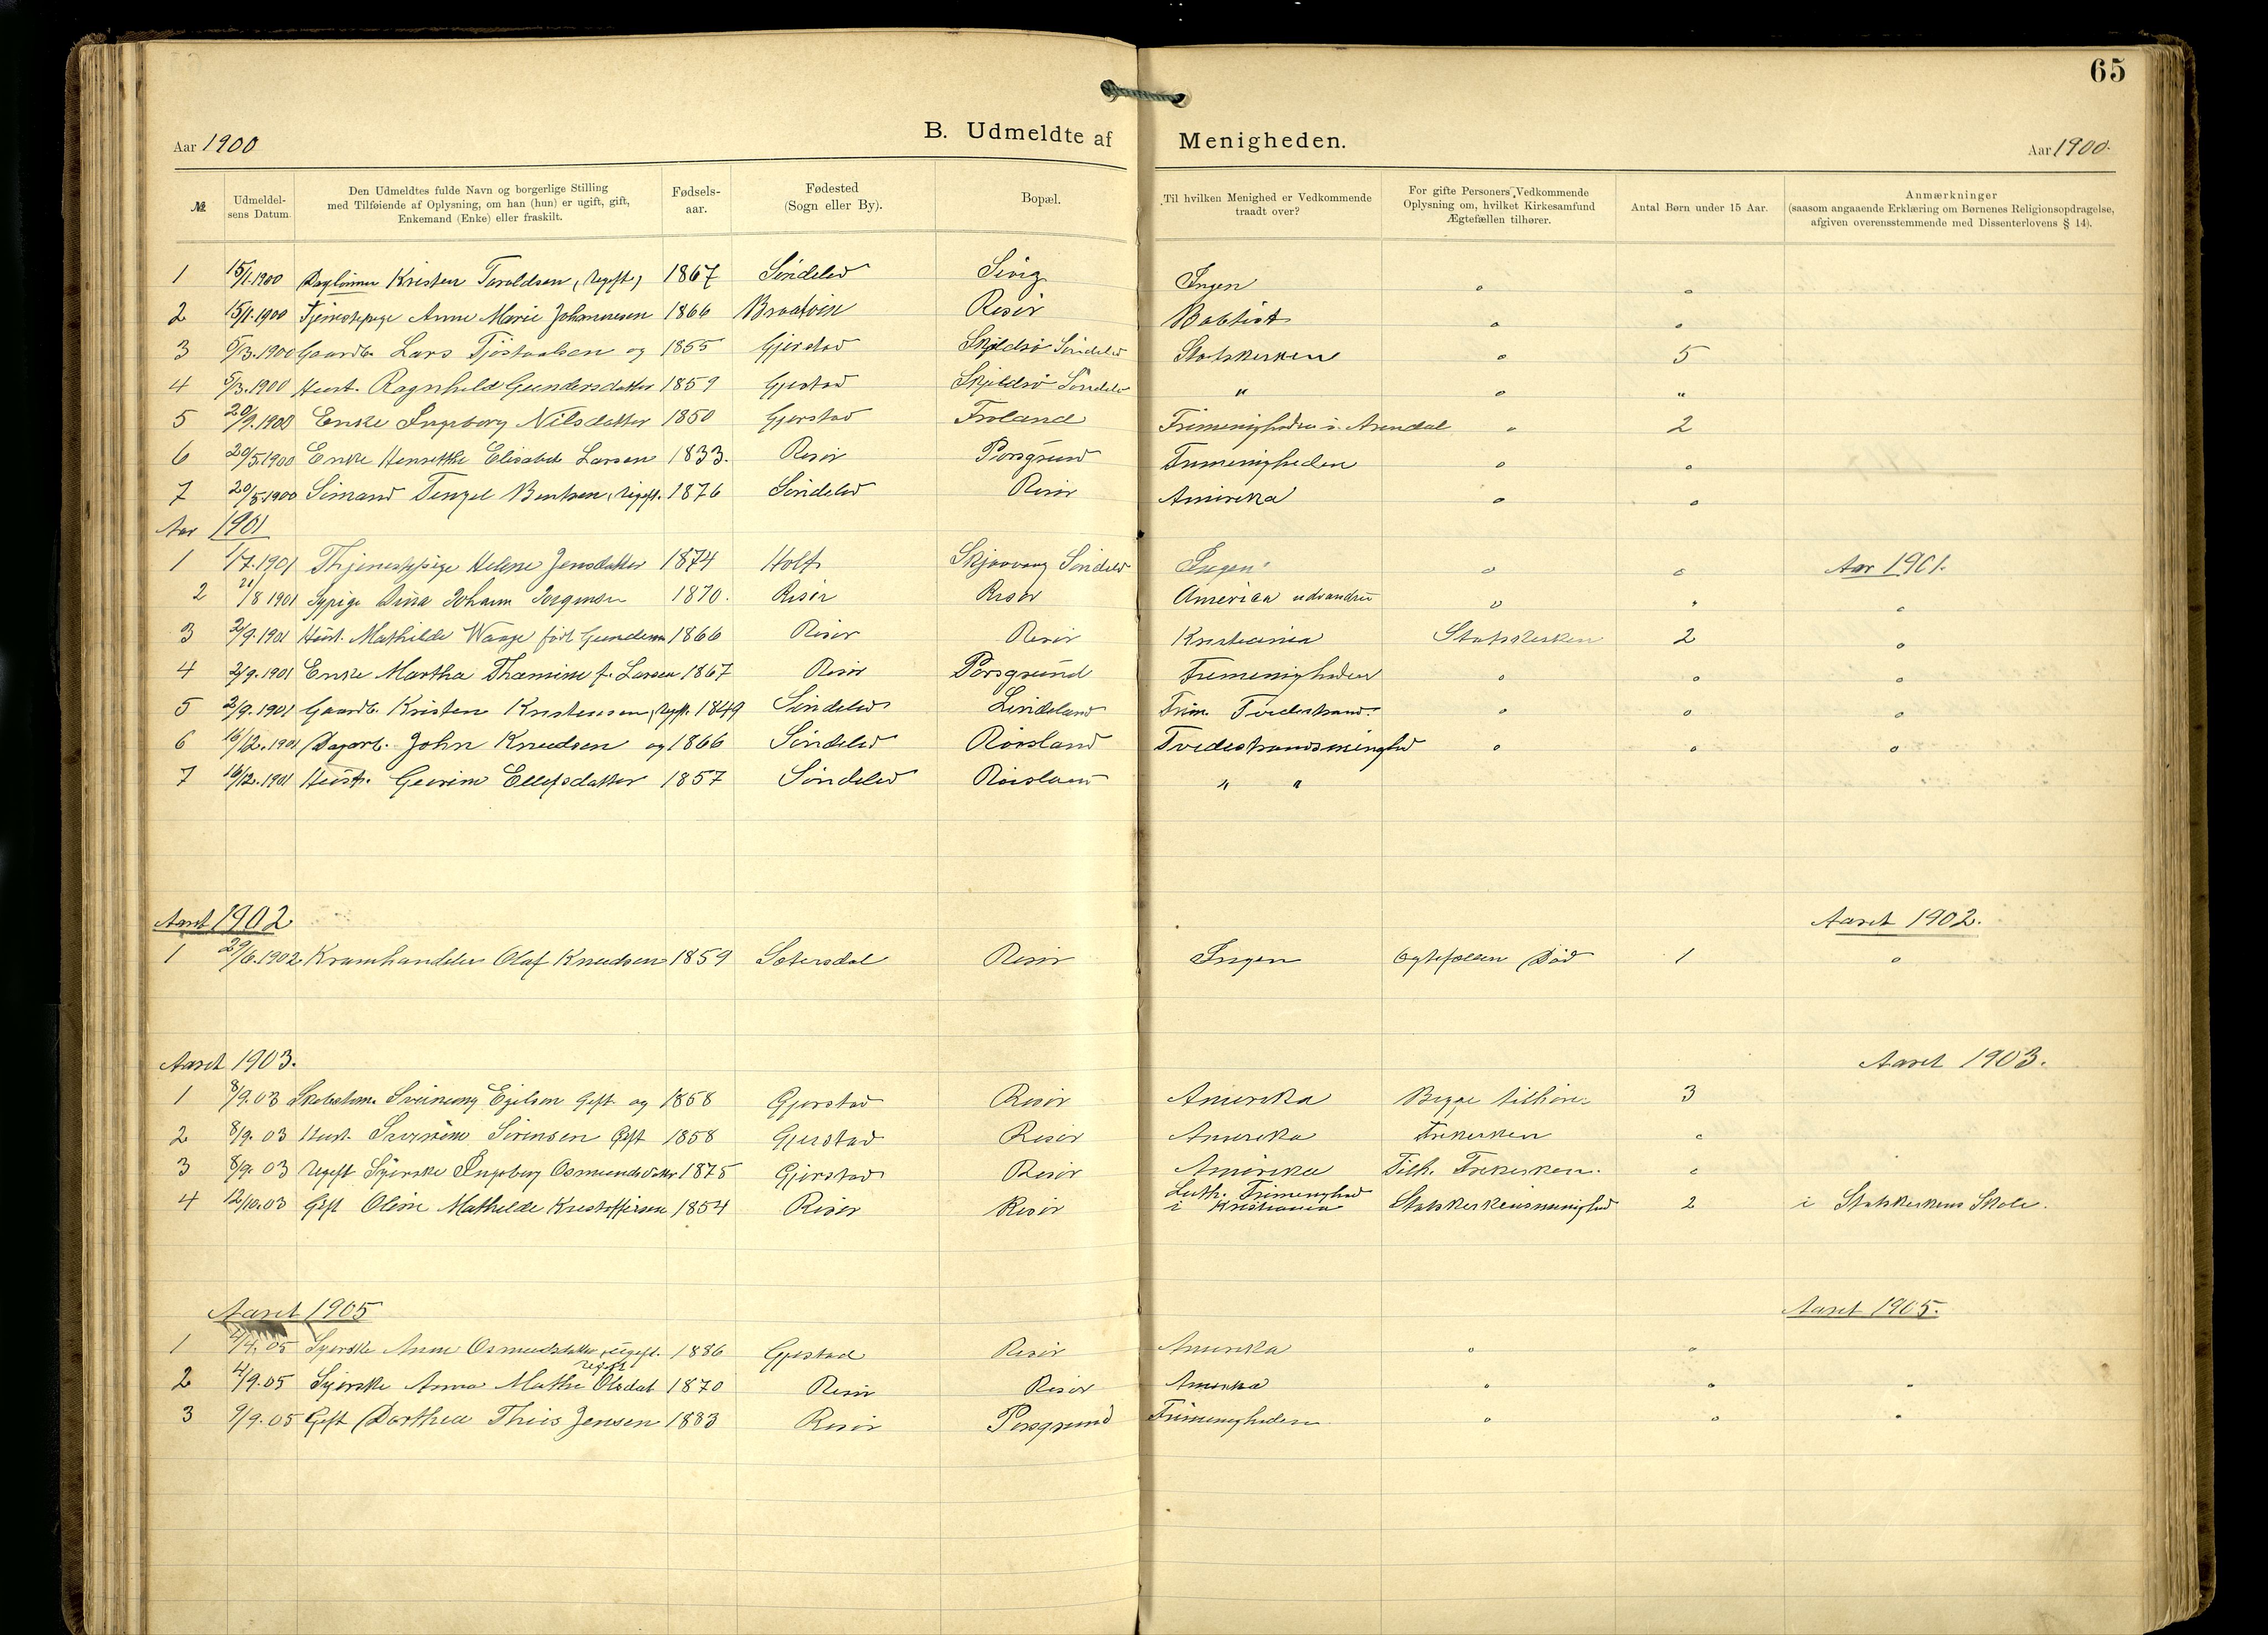 65
B. Udmeldte af Menigheden.
Aar 1900 Aar 1900.
№ Udmeldelsens Datum. Den Udmeldtes fulde Navn og borgerlige Stilling med Tilføiende af Oplysning, om han (hun) er ugift, gift, Enkemand (Enke) eller fraskilt. Fødselsaar. Fødested (Sogn eller By). Bopæl. Til hvilken Menighed er Vedkommende traadt over? For gifte Personers Vedkommende Oplysning om, hvilket Kirkesamfund Ægtefællen tilhører. Antal Børn under 15 Aar. Anmærkninger (saasom angaaende Erklæring om Børnenes Religionsopdragelse, afgiven overensstemmende med Dissenterlovens § 14).
1 15/1.1900 Daglönner Kristen Taraldsen, Ugift, 1867 Söndeled Ingen
2 15/1.1900 Tjenestepige Anne Marie Johannesen 1866 Risör Babtist
3 5/3.1900 Gaardb. Lars Tjöstaalsen og 1855 Gjerstad Skjeldsö Söndeled Statskirken 5
4 5/3.1900 Hust. Ragnhild Gundersdatter 1859 Gjerstad Skjeldsö Söndeled " "
5 20/9.1900 Enke Ingeborg Nilsdatter 1850 Gjerstad Froland Frimenigheden i Arendal 2
6 20/5.1900 Enke Henrikke Elisabet Larsen 1833. Risör Porsgrund Frimenigheden
7 20/5.1900 Sömand Tengel Bentsen, Ugift. 1876 Söndeled Risör Amerika
Aar 1901
1 1/7.1901 Thjenestepige Helene Jensdatter 1874 Holt Söndeled Ingen Aar 1901.
2 20/8 1901 Sypige Dina Johann Jorgensen 1870. Risör Risör America udvandret
3 2/9.1901 Hust. Mathilde Waage född Gundersen 1866 Risör Risör Kristiania Statskirken 2
4 2/9.1901 Enke Martha Thomine f. Larsen 1867 Risör Porsgrund Frimenigheden
5 2/9.1901 Gaardb. Kristen Kristensen, Ugift. 1849 Söndeled Lindeland Frim. Tvedestrand.
6 16/12.1901 Dagarb. John Knudsen og 1866 Söndeled Rörsland Tvedestrandsmenighed
7 16/12.1901 Hust. Gurine Ellefsdatter 1857 Söndeled Rörsland " "
Aaret 1902 Aaret 1902.
1 29/6.1902 Kramhandler Olaf Knudsen 1859 Setersdal Risör Ingen Egtefællen Död 1
Aaret 1903. Aaret 1903.
1 8/9.03 Sveinung Egilsen Gift og 1858 Gjerstad Risör Amerika Begge tilhörer 3
2 8/9.03 Hust. Sörensen Gift 1858 Gjerstad Risör Amerika Frikirken
3 8/9.03 Ugift Syerske Ingeborg Osmundsdatter 1875 Gjerstad Risör Amerika Tilh. Frikirken.
4 12/10.03 Gift Oline Mathilde Kristoffersen 1854 Risör Risör Luth. Frimenighed i Kristiania Statskirkensmenighed 2 i Statskirkens Skole.
Aaret 1905 Aaret 1905.
1 4/4.05 Syerske Anne Osmundsdatter, ugift. 1886 Gjestad Risör Amerika
2 4/9.05 Syerske Anna Mathe Olsdat Ugift 1870 Risör Risör Amerika
3 9/9.05 Gift Dorthea Jensen 1883 Risör Porsgrund Frimenigheden